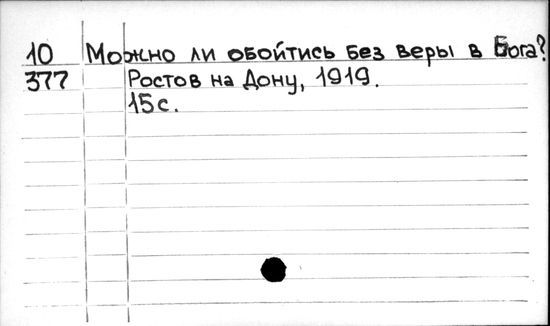 10 Можно ли обойтись без веры в Бога?
377 Ростов на Дону, 1919.
15 с.